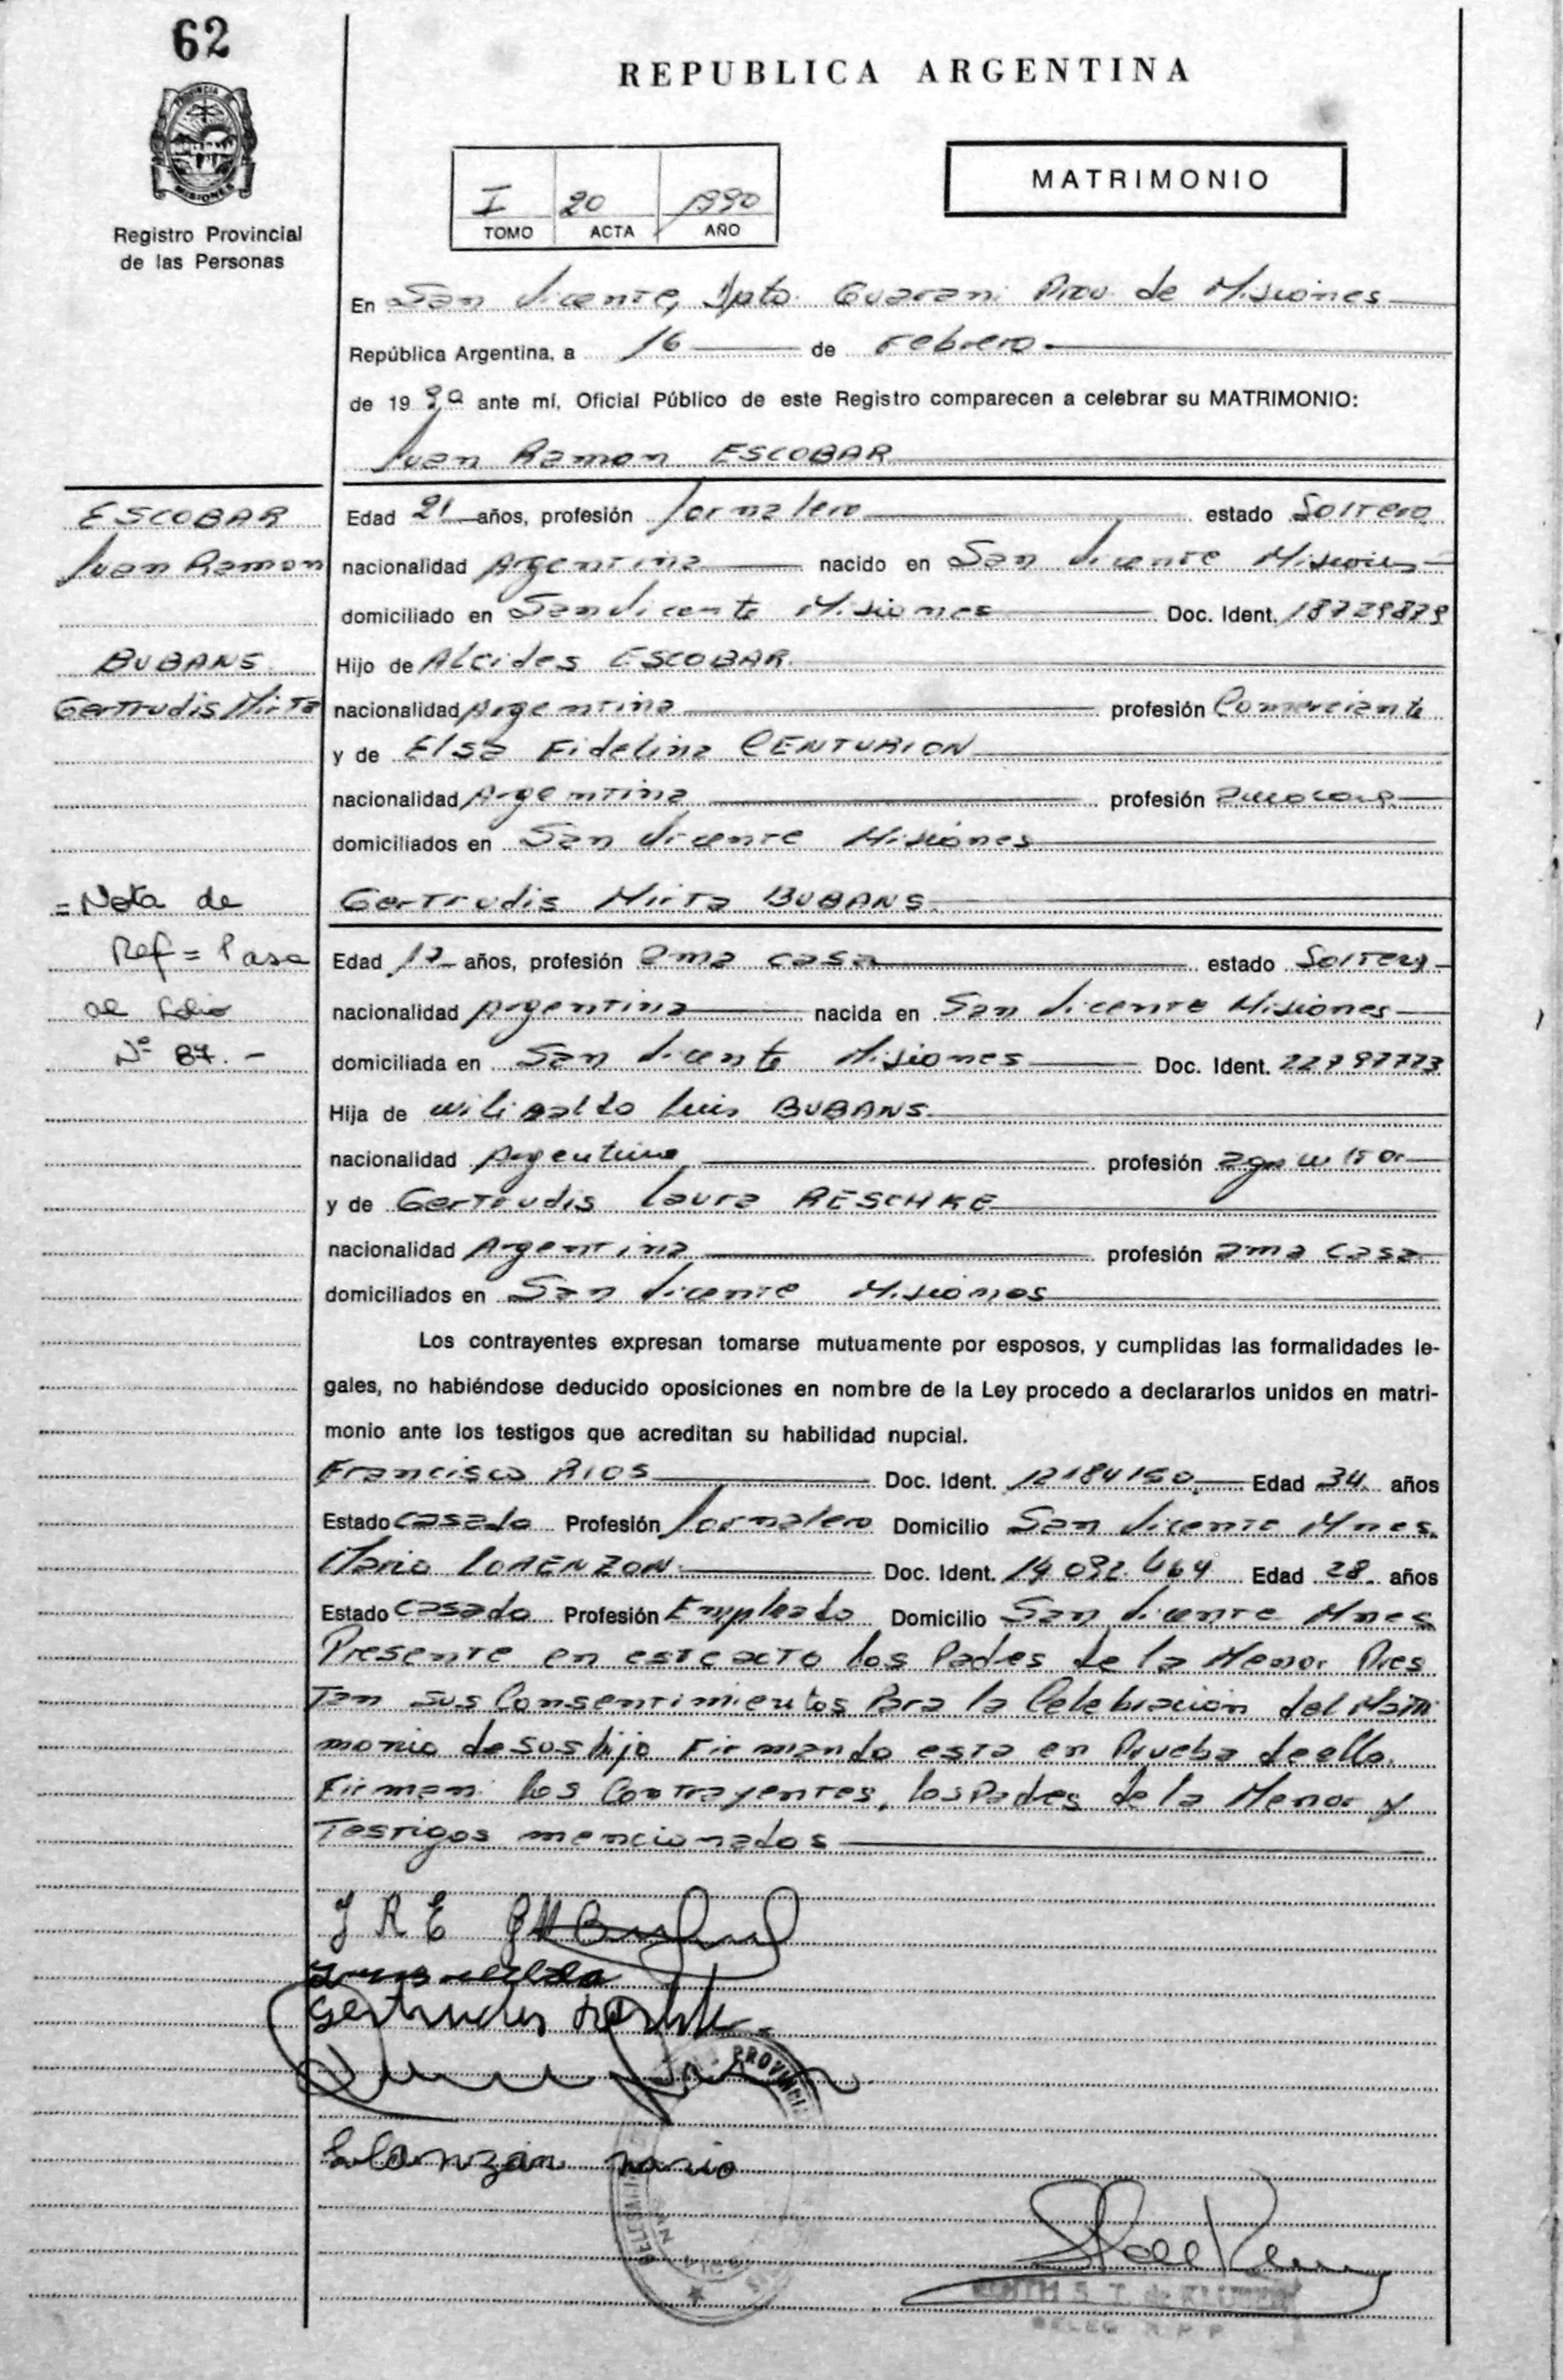 62
REPUBLICA ARGENTINA
PROVINCIA DE
MISIONES
Registro Provincial
de las Personas
I 20 1990
TOMO ACTA AÑO
MATRIMONIO
En San Vicente, Dpto. Guarani Prov. de Misiones
República Argentina, a 16 de Febrero
de 1990 ante mí, Oficial Público de este Registro comparecen a celebrar su MATRIMONIO:
Juan Ramon ESCOBAR
ESCOBAR
Juan Ramon
BUBANS
Gertrudis Mirta
= Nota de
Ref = Pase
al folio
Nº 87. -
Edad 21 años, profesión Jornalero estado Soltero
nacionalidad Argentina nacido en San Vicente Misiones
domiciliado en San Vicente Misiones Doc. Ident. 18729879
Hijo de Alcides ESCOBAR
nacionalidad Argentina profesión Comerciante
y de Elsa Fidelina CENTURION
nacionalidad Argentina profesión
domiciliados en San Vicente Misiones
Gertrudis Mirta BUBANS
Edad años, profesión ama casa estado Soltera
nacionalidad Argentina nacida en San Vicente Misiones
domiciliada en San Vicente Misiones Doc. Ident. 22797773
Hija de Luis BUBANS
nacionalidad Argentina profesión agricultor
y de Gertrudis Laura RESCHKE
nacionalidad Argentina profesión ama casa
domiciliados en San Vicente Misiones
Los contrayentes expresan tomarse mutuamente por esposos, y cumplidas las formalidades le-
gales, no habiéndose deducido oposiciones en nombre de la Ley procedo a declararlos unidos en matri-
monio ante los testigos que acreditan su habilidad nupcial.
Francisco RIOS Doc. Ident. 12184150 Edad 34 años
Estado casado Profesión Jornalero Domicilio San Vicente Mnes.
Mario LORENZON Doc. Ident. 14.092.464 Edad 28 años
Estado casado Profesión Empleado Domicilio San Vicente Mnes
Presente en este acto los Padres de la Menor Pres
tan sus Consentimientos Para la Celebracion del Matri
monio de sus hijo Firmando esta en Prueba de ello.
Firman: los Contrayentes, los Padres de la Menor y
Testigos mencionados
J R E
Gertrudis
mario
PROVINCI